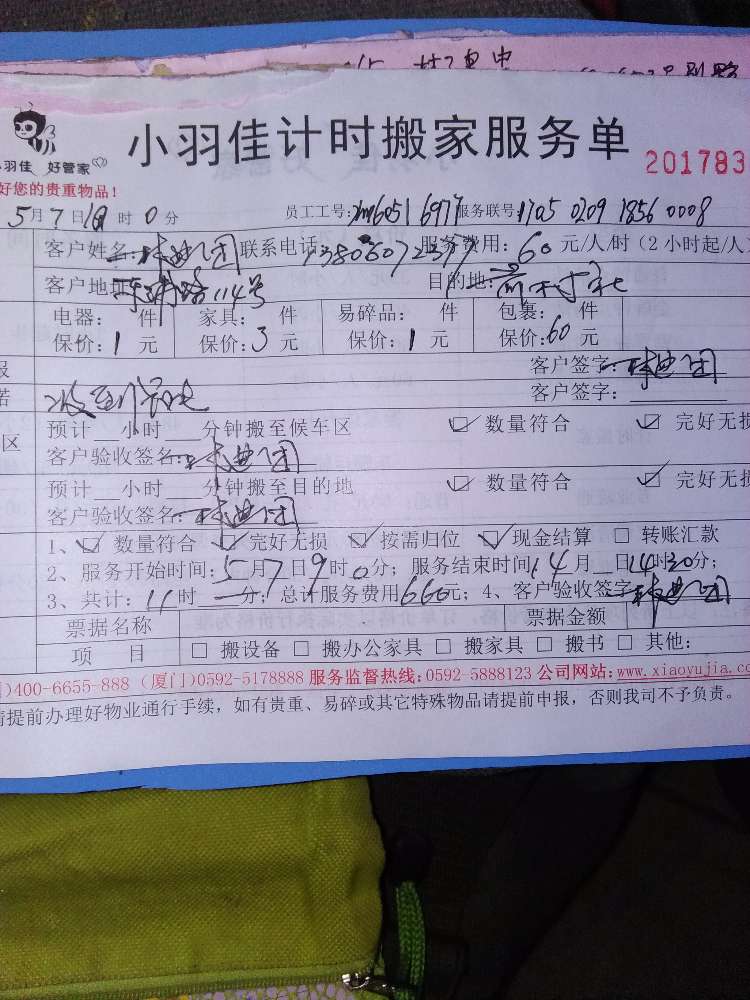 小羽佳计时搬家服务单
小羽佳 好管家
201783
好您的贵重物品!
5月7日 时0分 员工工号: 服务联号:1705 0209 1856 0008
客户姓名: 联系电话: 服务费用:60元/人/时(2小时起/人)
客户地址: 路114号 目的地:
电器: 件 家具: 件 易碎品: 件 包裹: 件
保价:1元 保价:3元 保价:1元 保价:60元
客户签字:
客户签字:
预计__小时__分钟搬至候车区 ☑ 数量符合 ☑ 完好无损
客户验收签名:
预计__小时__分钟搬至目的地 ☑ 数量符合 ☑ 完好无损
客户验收签名:
1、☑ 数量符合 ☑ 完好无损 ☑ 按需归位 ☑ 现金结算 □ 转账汇款
2、服务开始时间:5月7日9时0分; 服务结束时间: 月 日14时30分;
3、共计:11时 分; 总计服务费用660元; 4、客户验收签字
票据名称 票据金额
项 目 □ 搬设备 □ 搬办公家具 □ 搬家具 □ 搬书 □ 其他:
)400-6655-888 (厦门)0592-5178888 服务监督热线:0592-5888123 公司网站:www.xiaoyujia.com
请提前办理好物业通行手续,如有贵重、易碎或其它特殊物品请提前申报,否则我司不予负责。